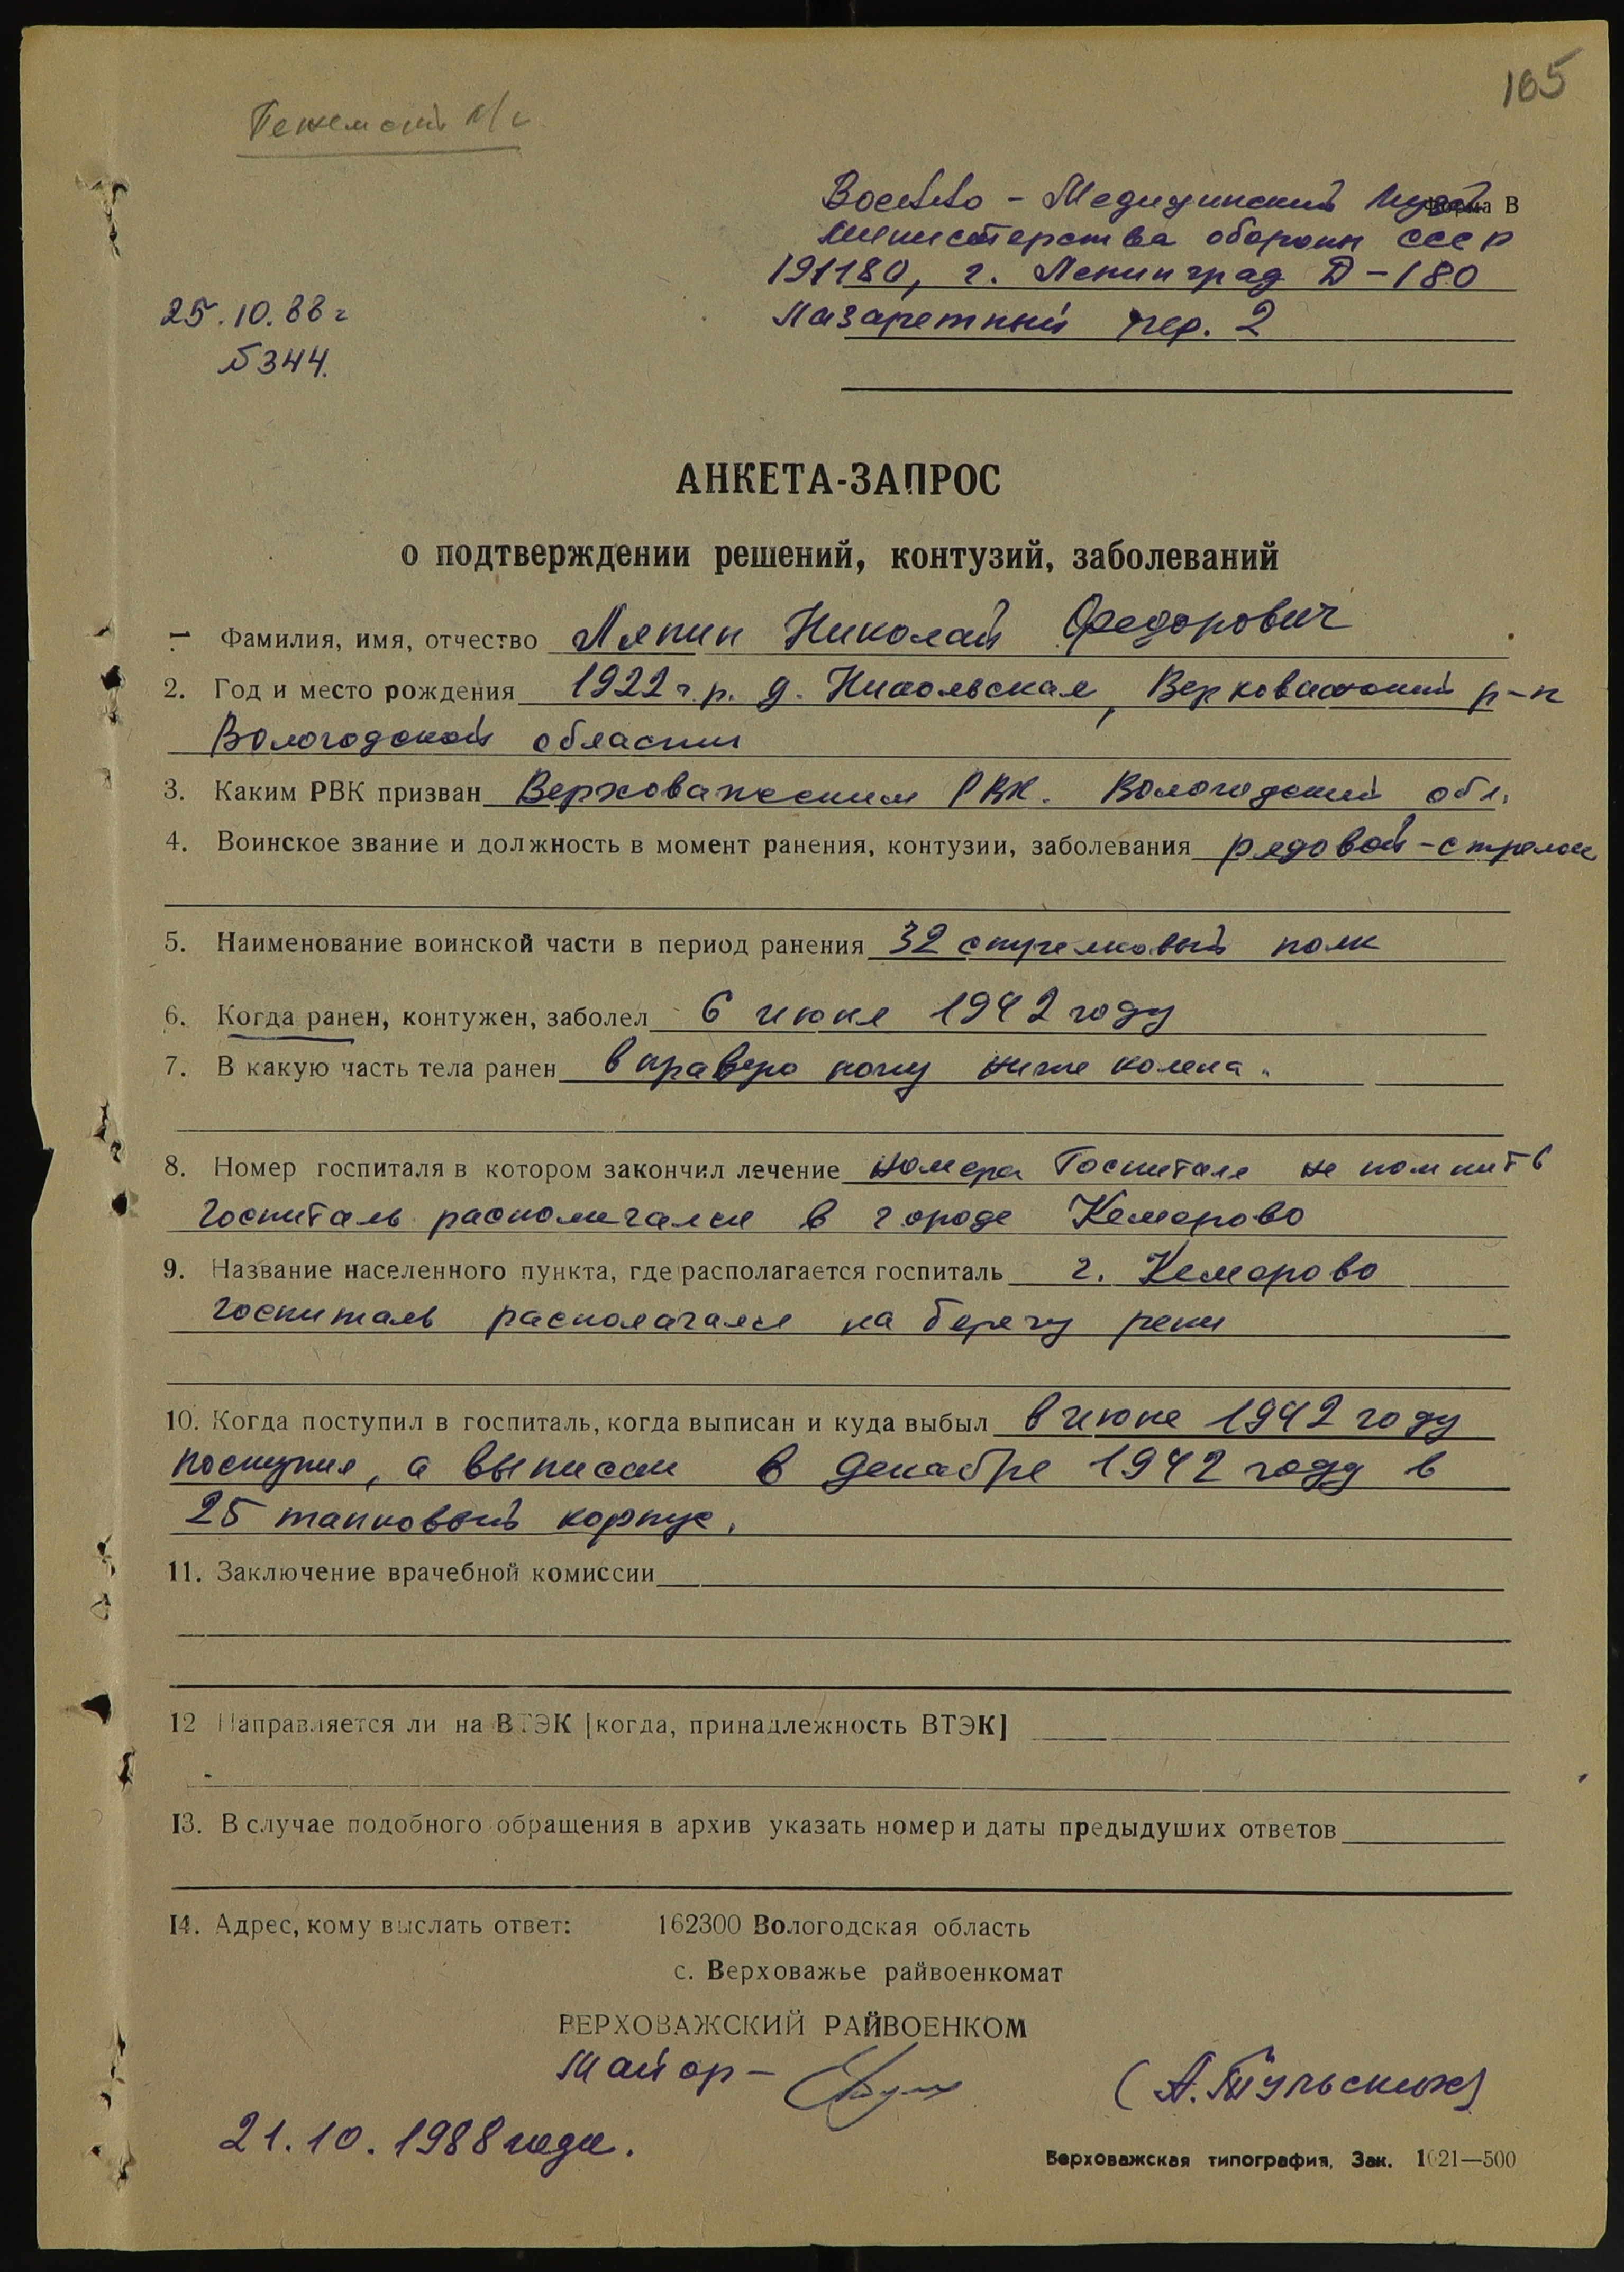 165
Военно - Медицинский Музей
Форма В
Министерства обороны СССР
191180, г. Ленинград Д-180
Лазаретный пер. 2
25.10.88 г
№344.
АНКЕТА-ЗАПРОС
о подтверждении решений, контузий, заболеваний
1. Фамилия, имя, отчество Ляпин Николай Федорович
2. Год и место рождения 1922 г.р. д. Никольская, Верховажский р-н
Вологодской области
3. Каким РВК призван Верховажским РВК. Вологодский обл.
4. Воинское звание и должность в момент ранения, контузии, заболевания рядовой-стрелок
5. Наименование воинской части в период ранения 32 стрелковый полк
6. Когда ранен, контужен, заболел 6 июня 1942 году
7. В какую часть тела ранен в правую ногу ниже колена.
8. Номер госпиталя в котором закончил лечение номера Госпиталя не помнит
госпиталь располагался в городе Кемерово
9. Название населенного пункта, где располагается госпиталь г. Кемерово
госпиталь располагался на берегу реки
10. Когда поступил в госпиталь, когда выписан и куда выбыл в июне 1942 году
поступил, а выписан в декабре 1942 году в
25 танковый корпус.
11. Заключение врачебной комиссии
12 Направляется ли на ВТЭК [когда, принадлежность ВТЭК]
13. В случае подобного обращения в архив указать номер и даты предыдуших ответов
14. Адрес, кому выслать ответ: 162300 Вологодская область
с. Верховажье райвоенкомат
ВЕРХОВАЖСКИЙ РАЙВОЕНКОМ
Майор - (А.Тульских)
21.10.1988 года.
Верховажская типография, Зак. 1621—500